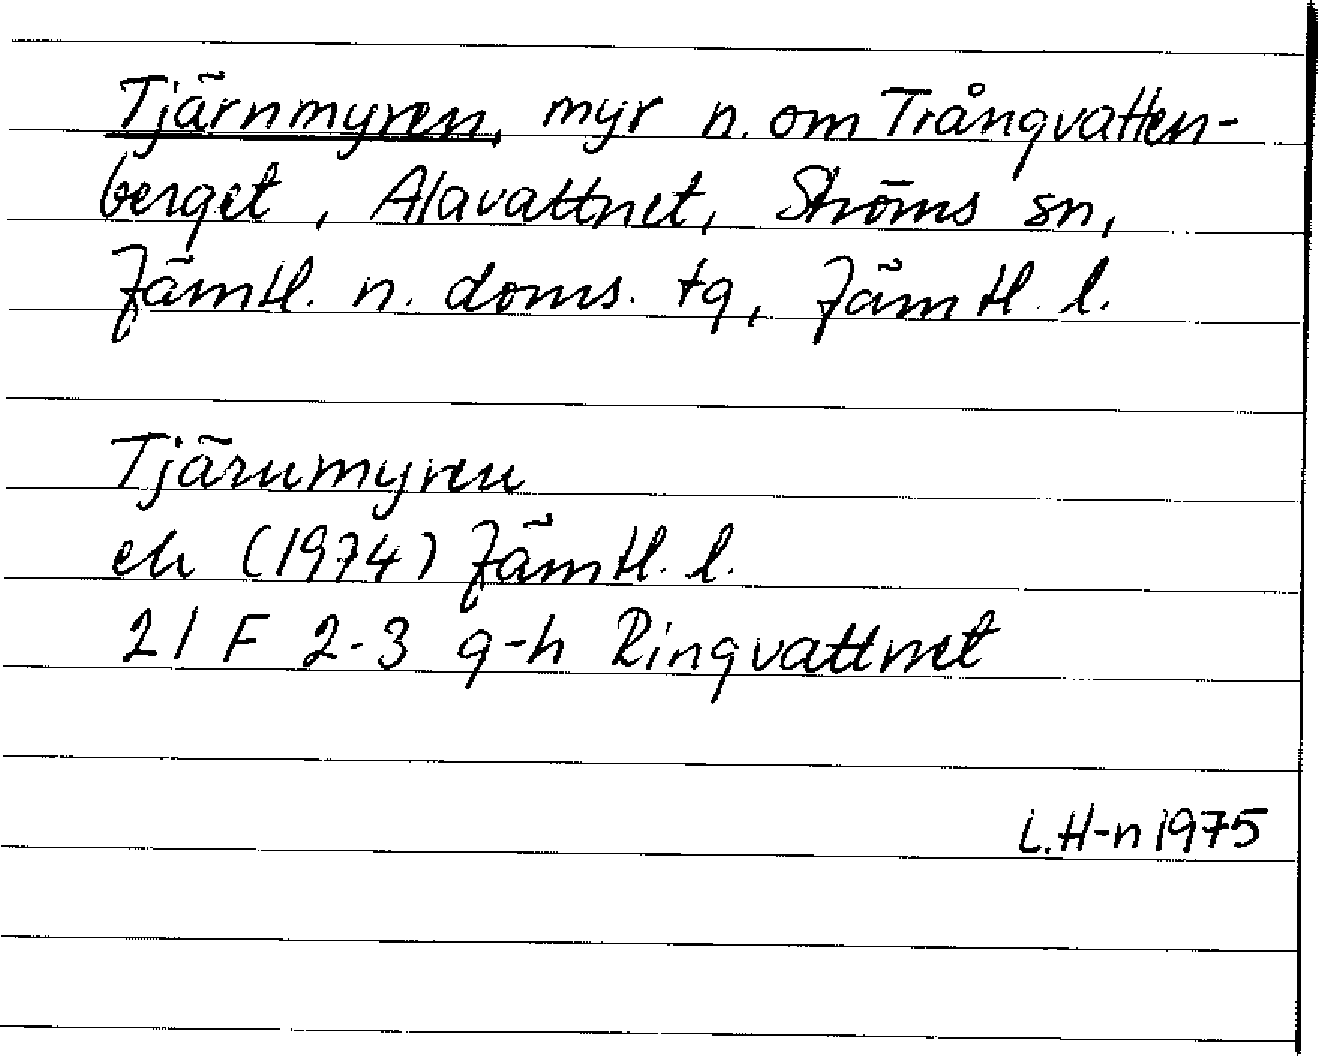 Tjärnmyren, myr n. om Trångvatten-
berget, Alavattnet, Ströms sn,
Jämtl. n. doms. tg, Jämtl. l.
Tjärnmyren
ek (1974) Jämtl. l.
21 F 2-3 g-h Ringvattnet
L.H-n 1975